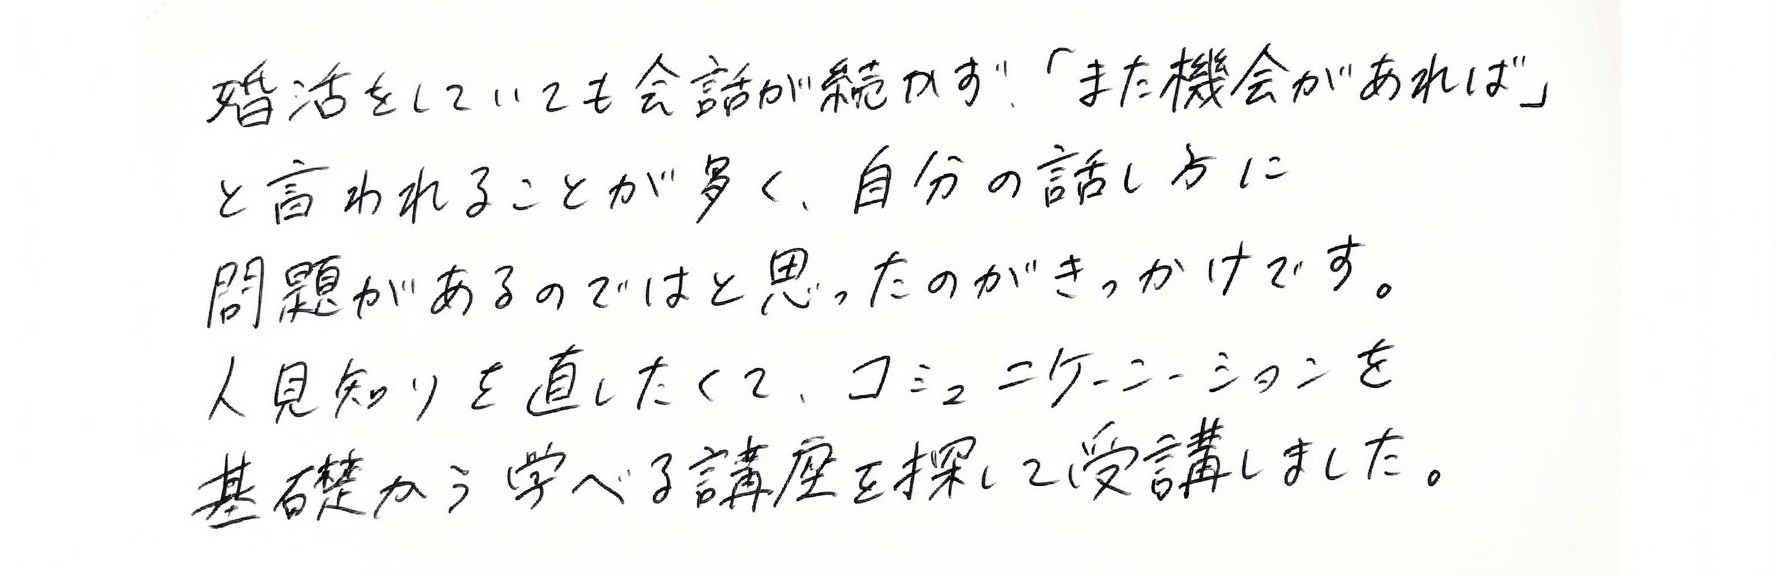 婚活をしていても会話が続かず、「また機会があれば」
と言われることが多く、自分の話し方に
問題があるのではと思ったのがきっかけです。
人見知りを直したくて、コミュニケーションを
基礎から学べる講座を探して受講しました。